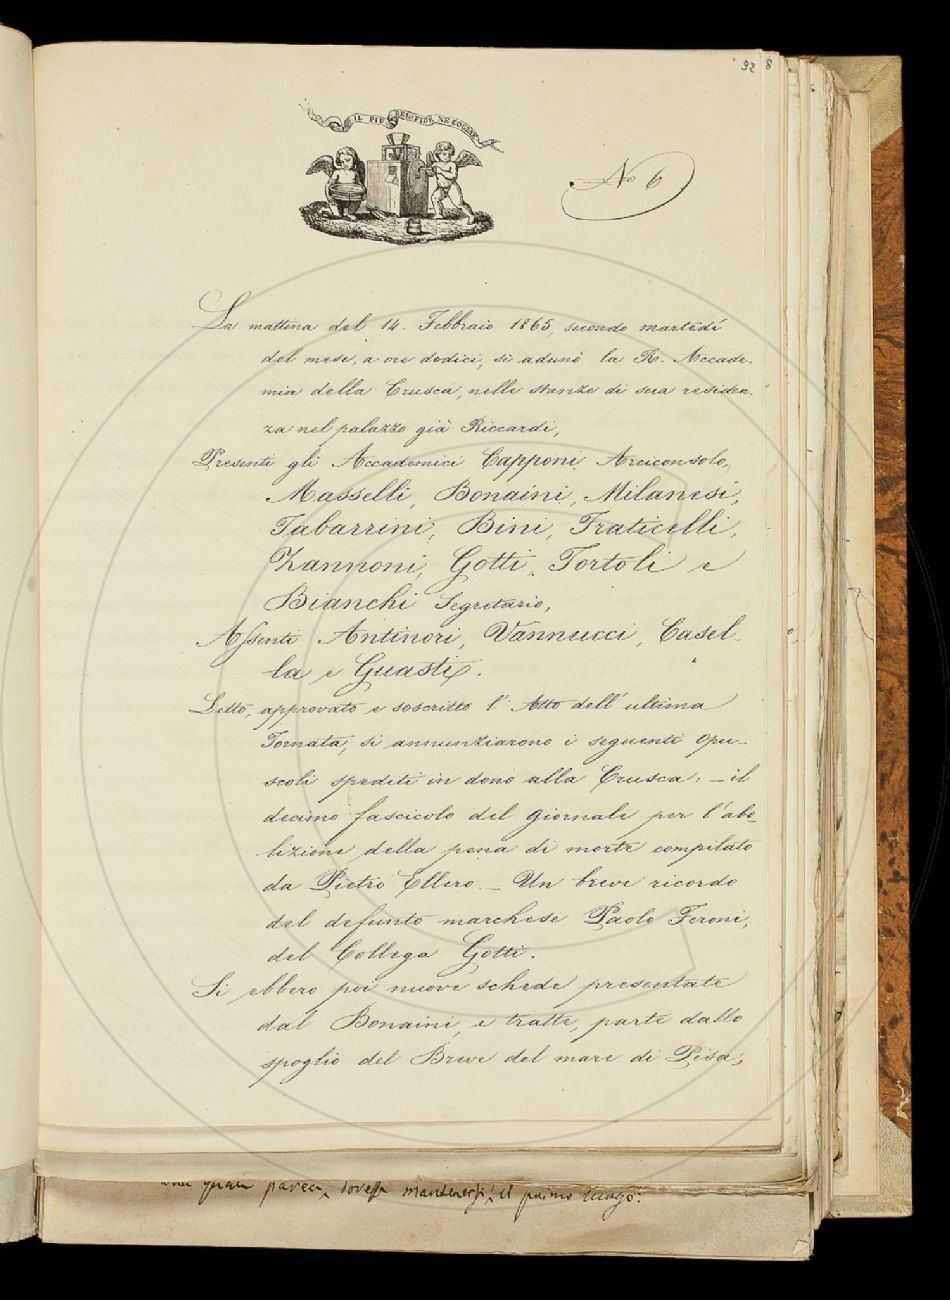 32 8
IL PIÙ BEL FIOR NE COGLIE
No 6
La mattina del 14. Febbraio 1865, secondo martedì
del mese, a ore dodici, si adunò la R. Accade-
mia della Crusca, nelle stanze di sua residen-
za nel palazzo già Riccardi,
Presenti gli Accademici Capponi Arciconsolo,
Masselli, Bonaini, Milanesi,
Tabarrini, Bini, Fraticelli,
Zannoni, Gotti, Tortoli e
Bianchi Segretario,
Assenti Antinori, Vannucci, Casel-
la e Guasti.
Letto, approvato e soscritto l'Atto dell'ultima
Tornata, si annunziarono i seguenti opu-
scoli spediti in dono alla Crusca: – il
decimo fascicolo del giornale per l'abo-
lizione della pena di morte compilato
da Pietro Ellero. – Un breve ricordo
del defunto marchese Paolo Feroni,
del Collega Gotti.
Si ebbero poi nuove schede presentate
dal Bonaini, e tratte, parte dallo
spoglio del Breve del mare di Pisa,
parea, dovesse mantenersi il primo luogo.